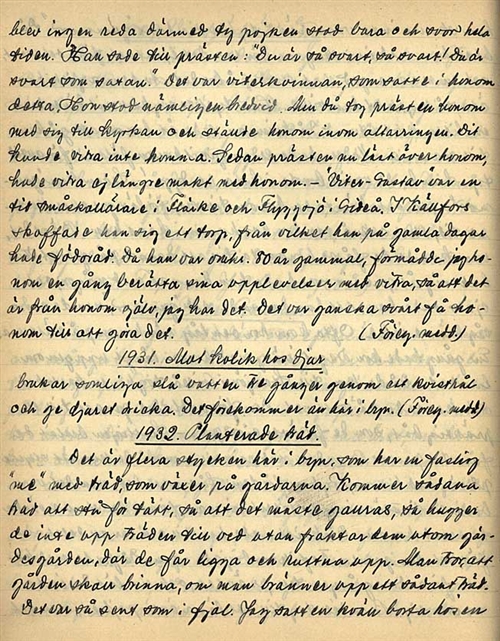 blev ingen reda därmed ty pojken stod bara och svor hela
tiden. Han sade till prästen: "Du är så svart, så svart! Du är
svart som satan." Det var viterkvinnan, som satte i honom
detta. Hon stod nämligen bredvid. Men då tog prästen honom
med sig till kyrkan och ställde honom inom altarringen. Dit
kunde vitra inte komma. Sedan prästen nu läst över honom,
hade vitra ej längre makt med honom. – "Viter-Gustav" var en
tid småskollärare i Flärke och Flyggsjö i Gideå. I Källfors
skaffade han sig ett torp, från vilket han på gamla dagar
hade födoråd. Då han var omkr. 80 år gammal, förmådde jag ho-
nom en gång berätta sina upplevelser med vitra, så att det
är från honom själv, jag har det. Det var ganska svårt få ho-
nom till att göra det. (Föreg. medd.)
1931. Mot kolik hos djur
brukar somliga slå vatten tre gånger genom ett kvisthål
och ge djuret dricka. Det förekommer än här i byn. (Föreg. medd)
1932. Planterade träd.
Det är flera stycken här i byn, som har en faslig
"me" med träd, som växer på gårdarna. Kommer sådana
träd att stå för tätt, så att det måste gauras, så hugger
de inte upp träden till ved utan fraktar dem utom går-
desgården, där de får ligga och ruttna upp. Man tror, att
gården skall brinna, om man bränner upp ett sådant träd.
Det var så sent som i fjol. Jag satt en kväll borta hos en